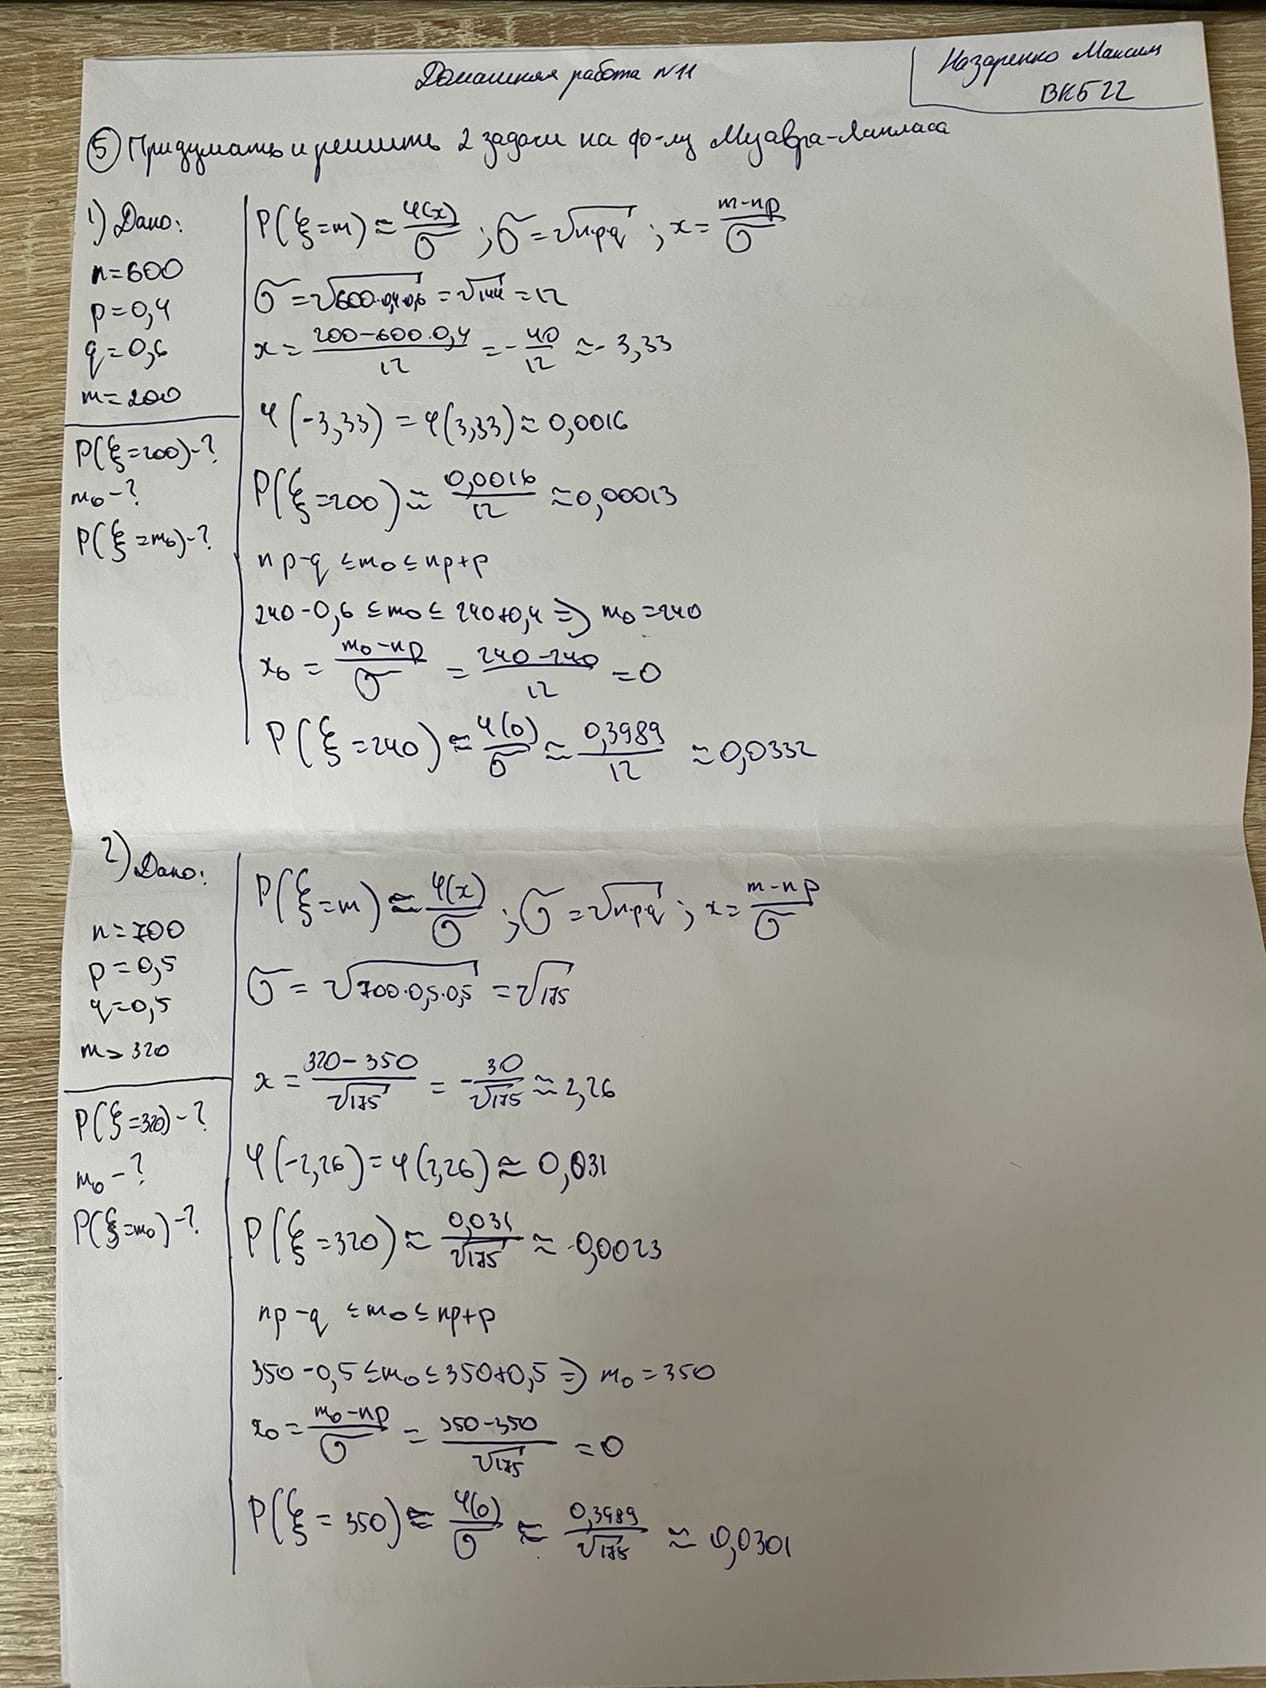 Домашняя работа №11
Назаренко Максим
ВКБ22
⑤ Придумать и решить 2 задачи на ф-лу Муавра-Лапласа
1) Дано:
n=600
p=0,4
q=0,6
m=200
P(ξ=200)-?
m₀-?
P(ξ=m₀)-?
P(ξ=m) ≈ φ(x)/σ ; σ=√npq ; x= (m-np)/σ
σ=√600·0,4·0,6 = √144 = 12
x = (200-600·0,4)/12 = -40/12 ≈ -3,33
φ(-3,33) = φ(3,33) ≈ 0,0016
P(ξ=200) ≈ 0,0016/12 ≈ 0,00013
np-q ≤ m₀ ≤ np+p
240-0,6 ≤ m₀ ≤ 240+0,4 ⇒ m₀=240
x₀ = (m₀-np)/σ = (240-240)/12 = 0
P(ξ=240) ≈ φ(0)/σ ≈ 0,3989/12 ≈ 0,0332
2) Дано:
n=700
p=0,5
q=0,5
m=320
P(ξ=320)-?
m₀-?
P(ξ=m₀)-?
P(ξ=m) ≈ φ(x)/σ ; σ=√npq ; x= (m-np)/σ
σ = √700·0,5·0,5 = √175
x = (320-350)/√175 = -30/√175 ≈ 2,26
φ(-2,26) = φ(2,26) ≈ 0,031
P(ξ=320) ≈ 0,031/√175 ≈ 0,0023
np-q ≤ m₀ ≤ np+p
350-0,5 ≤ m₀ ≤ 350+0,5 ⇒ m₀=350
x₀ = (m₀-np)/σ = (350-350)/√175 = 0
P(ξ=350) ≈ φ(0)/σ ≈ 0,3989/√175 ≈ 0,0301